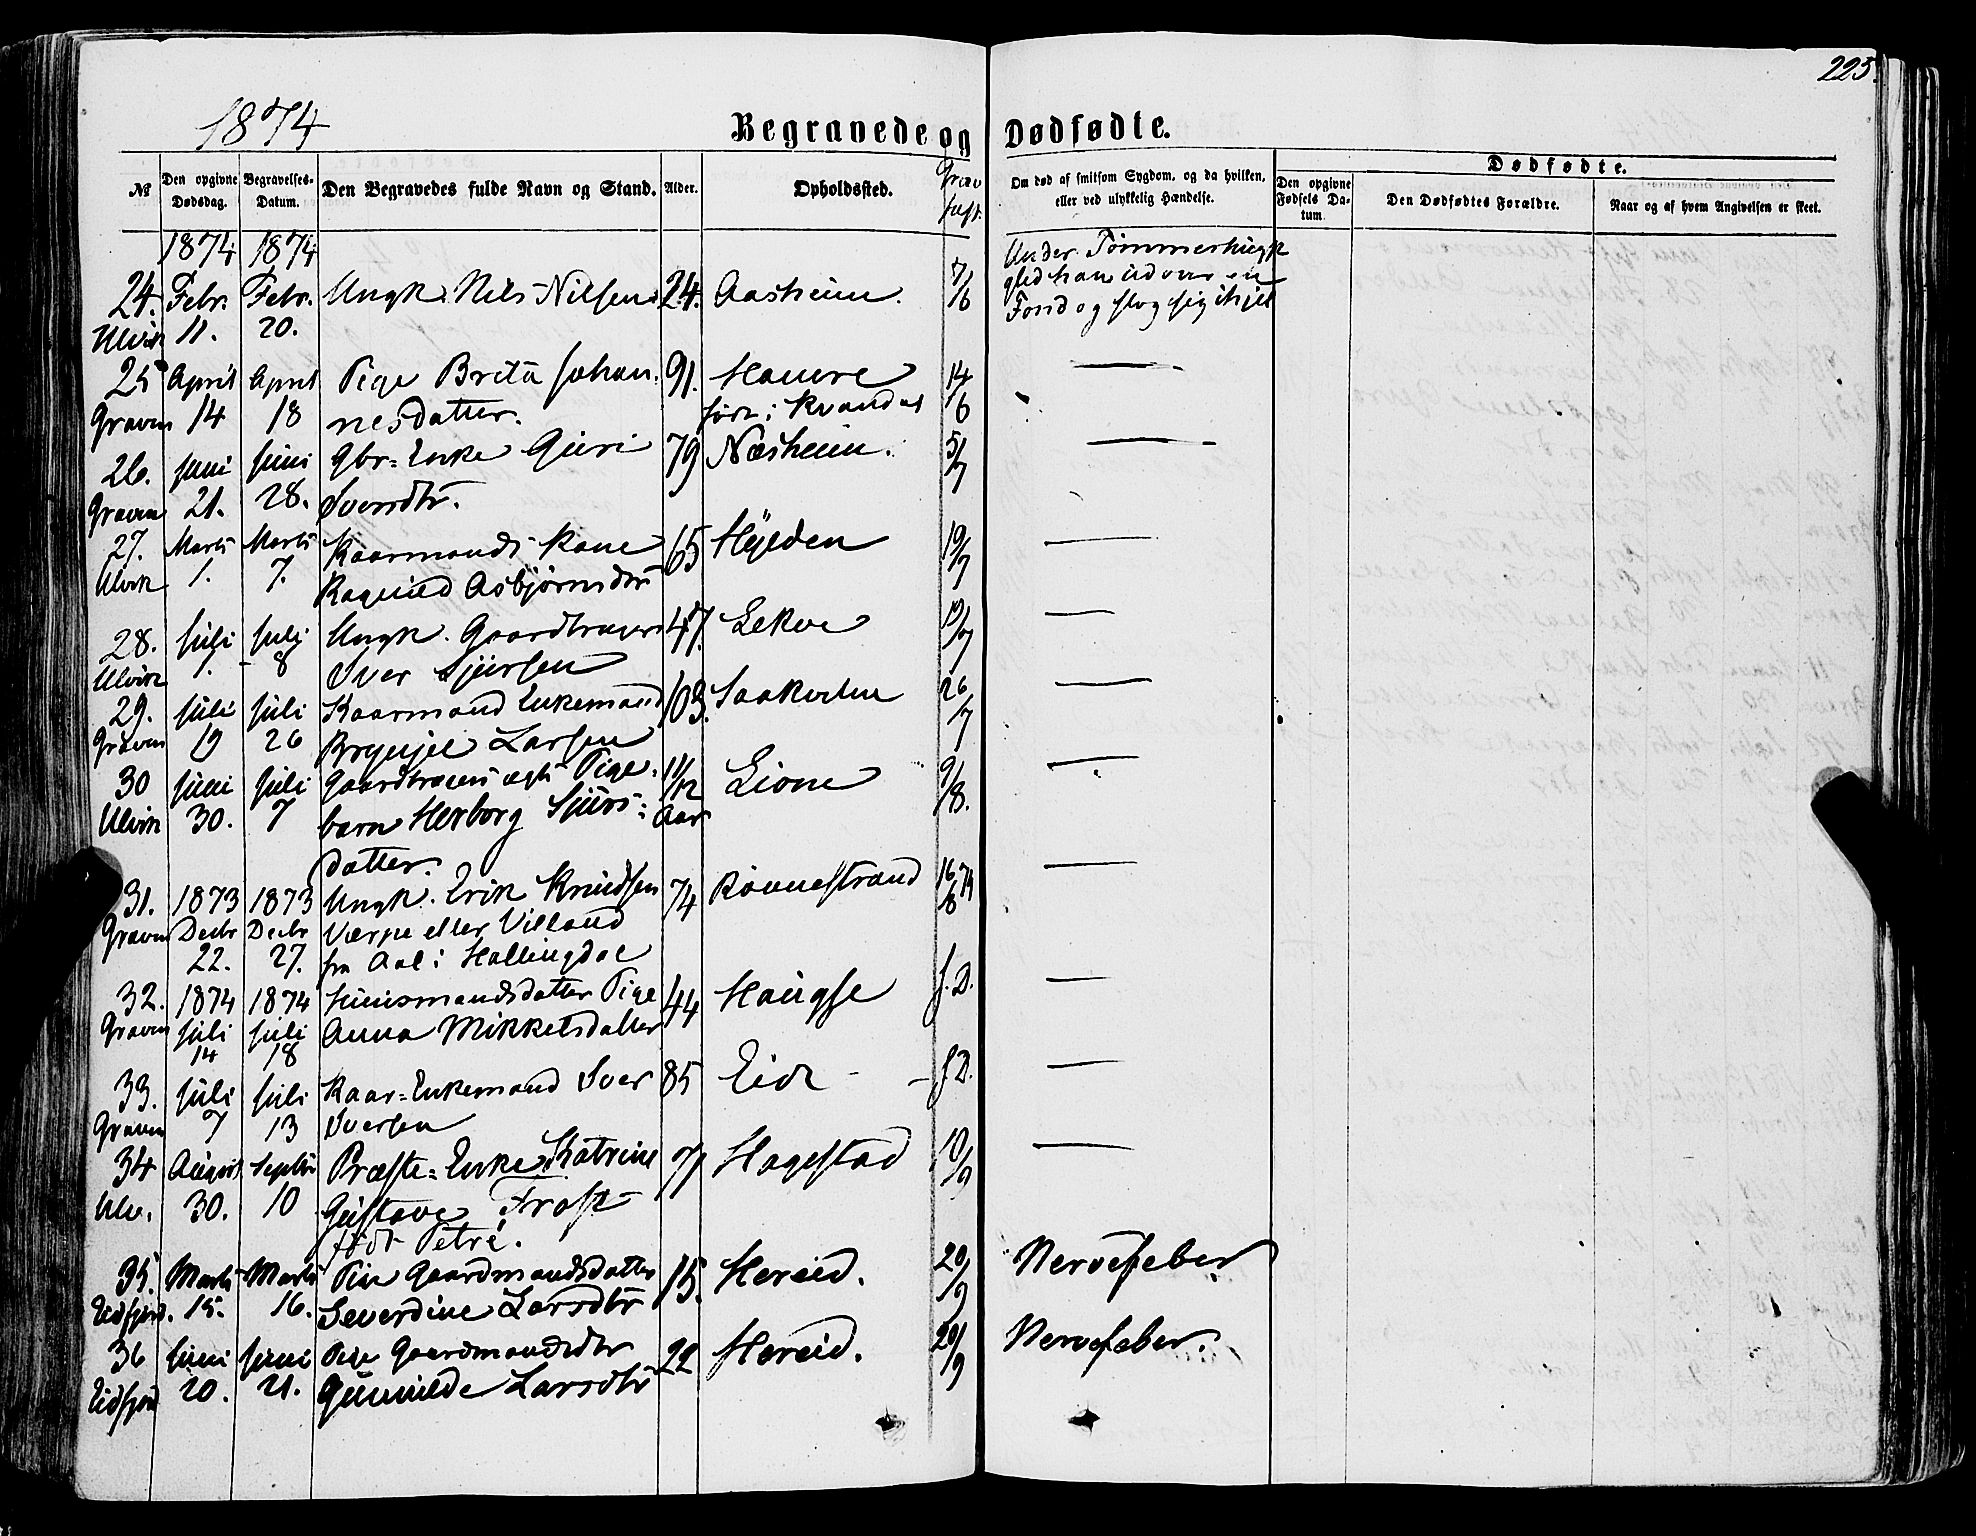 223.
1874
Begravede og Dødfødte.
№
Den opgivne Dødsdag.
Begravelses-Datum.
Den Begravedes fulde Navn og Stand.
Alder.
Opholdssted.
Grav fast.
Om død af smitsom Sygdom, og da hvilken, eller ved ulykkelig Hændelse.
Dødfødte.
Den opgivne Fødsels Datum.
Den Dødfødtes Forældre.
Naar og af hvem Angivelsen er skeet.
1874 1874 Under Tømmerhugst
24. Febr. Febr. Ungk. Nils Nilsen 24. Aasheim. 7/6 gled han ud over en
Ulvik 11. 20. Fond og slog sig ihjel
25 April April Pige Brita Johan- 91. Haure 14/6 —
Graven 14 18 nesdatter. i Kvandal
26. Juni Juni Gbr= Enke Guri 79 Næsheim. 5/7 —
Graven 21. 28. Iversdtr.
27. Marts Marts Kaarmands Kone 65 Hylden 19/7 —
Ulvik 1. 7. Ragnild Asbjørnsdtr
28. Juli July Ungk. Gaardbruger 47. Lekve 19/7 —
Ulvik 1. 8 Iver Sjursen
29. Juli Juli Kaarmand Enkemand 103. Saakvitne 26/7 —
Graven 19 26 Brynjel Larsen
30 Juni Juli Gaardbrugers ægte Pige- 11/12 Lione 9/8. —
Ulvik 30. 7 barn Herborg Sjurs- Aar
datter.
31. 1873 1873 Ungk. Erik Knudsen 74 Røvnestrand 16/8 74 —
Graven Decbr Decbr Værpe eller Villand
22. 27. fra Aal i Hallingdal
32. 1874 1874 Huusmandsdatter Pige 44 Haugse f. D. —
Graven Juli Juli Anna Mikkelsdatter
14 18
33. Juli Juli Kaar=Enkemand Iver 85 Eide - - f. D. —
Graven 7 13 Iversen
34 August Septbr Præste=Enke Katrine 77 Hagestad 10/9 —
Ulv. 30. 10 Gustave Frost
født Petré.
35. Marts Marts Pige Gaardmandsdatter 15. Hereid. 20/9 Nervefeber
Eidfjord. 15. 16. Severdine Larsdtr
36 Juni Juni Pige Gaardmandsdtr 22 Hereid. 20/9 Nervefeber.
Eidfjord 20. 21. Gunnilde Larsdtr